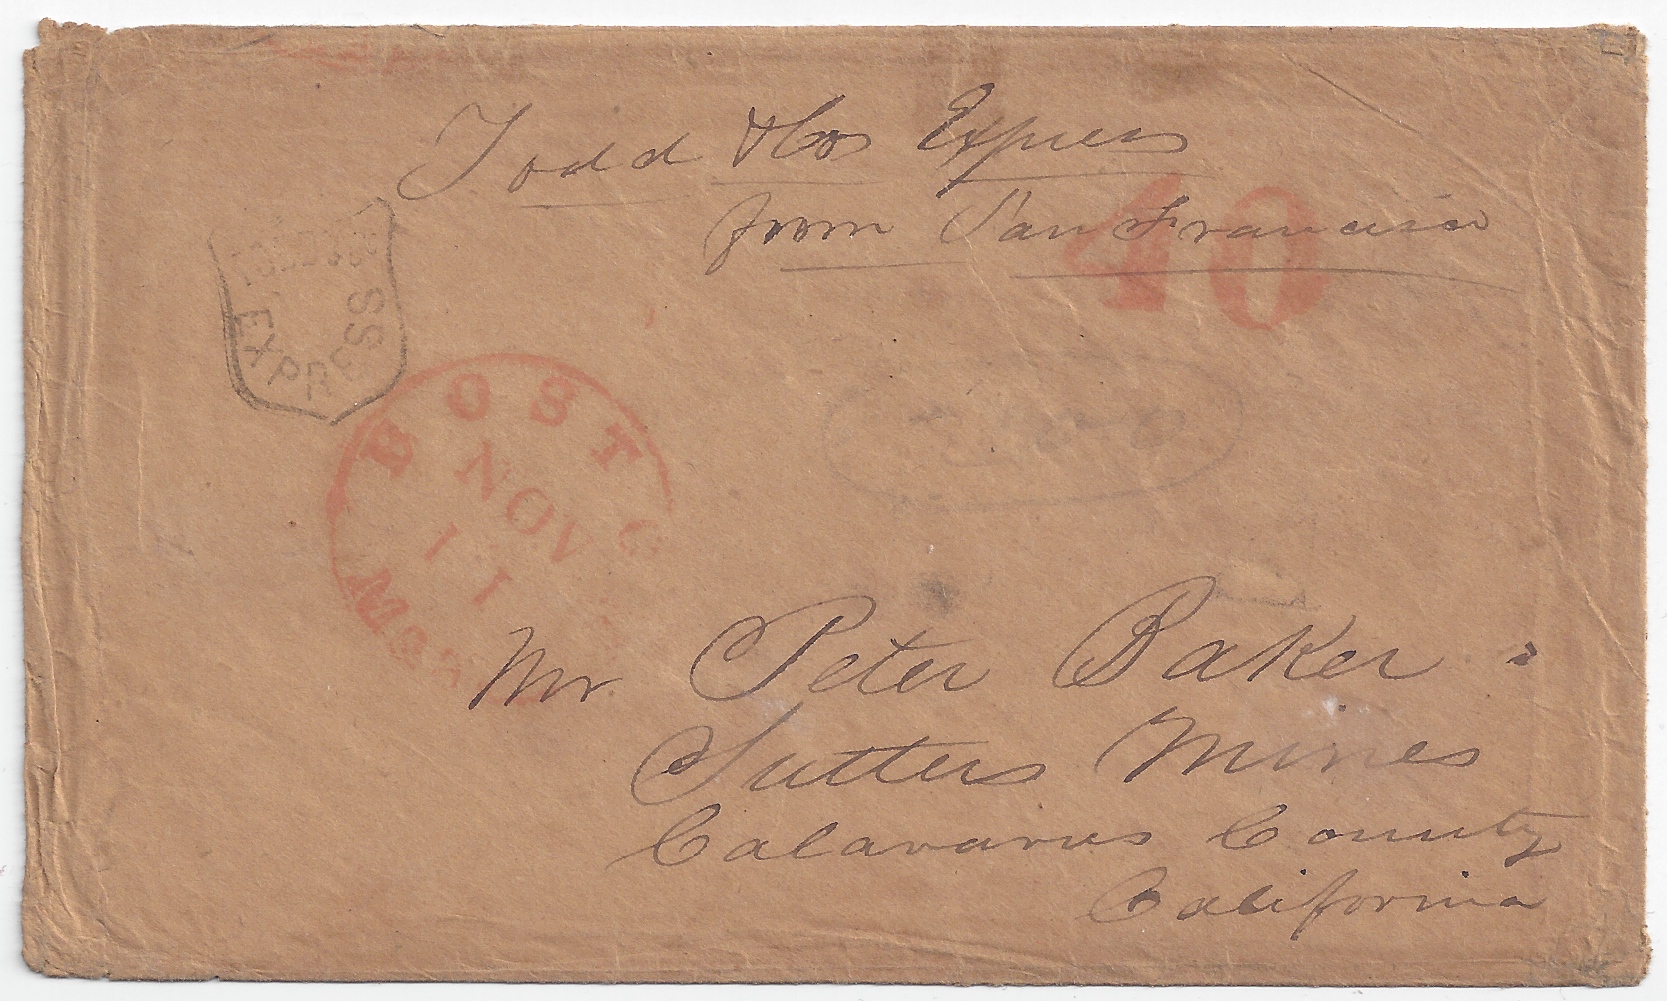 Todd & Cos Express
from San Francisco
40
EXPRESS
BOSTON
NOV
11
Mr. Peter Baker
Sutters Mines
Calavarus County
California